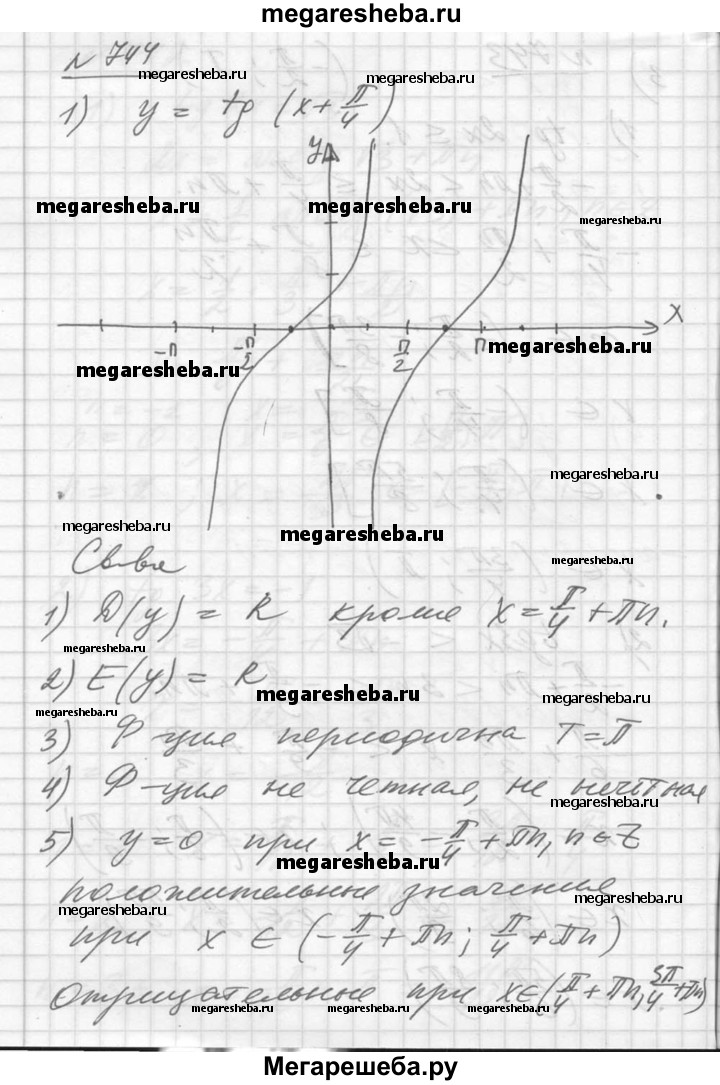 megaresheba.ru
№ 744
megaresheba.ru
megaresheba.ru
1) y = tg (x + π/4)
y
megaresheba.ru
megaresheba.ru
megaresheba.ru
x
-π
-π/2
π/2
π
megaresheba.ru
megaresheba.ru
megaresheba.ru
megaresheba.ru
megaresheba.ru
megaresheba.ru
Св-ва
1) D(y) = R кроме x = π/4 + πn.
megaresheba.ru
2) E(y) = R
megaresheba.ru
megaresheba.ru
megaresheba.ru
3) Ф-ция периодична T = π
4) Ф-ция не четная, не нечётная
megaresheba.ru
5) y = 0 при x = -π/4 + πn, n ∈ Z
megaresheba.ru
положительные значения
megaresheba.ru
megaresheba.ru
при x ∈ (-π/4 + πn; π/4 + πn)
Отрицательные при x ∈ (π/4 + πn, 3π/4 + πn)
megaresheba.ru
megaresheba.ru
megaresheba.ru
megaresheba.ru
Мегарешеба.ру